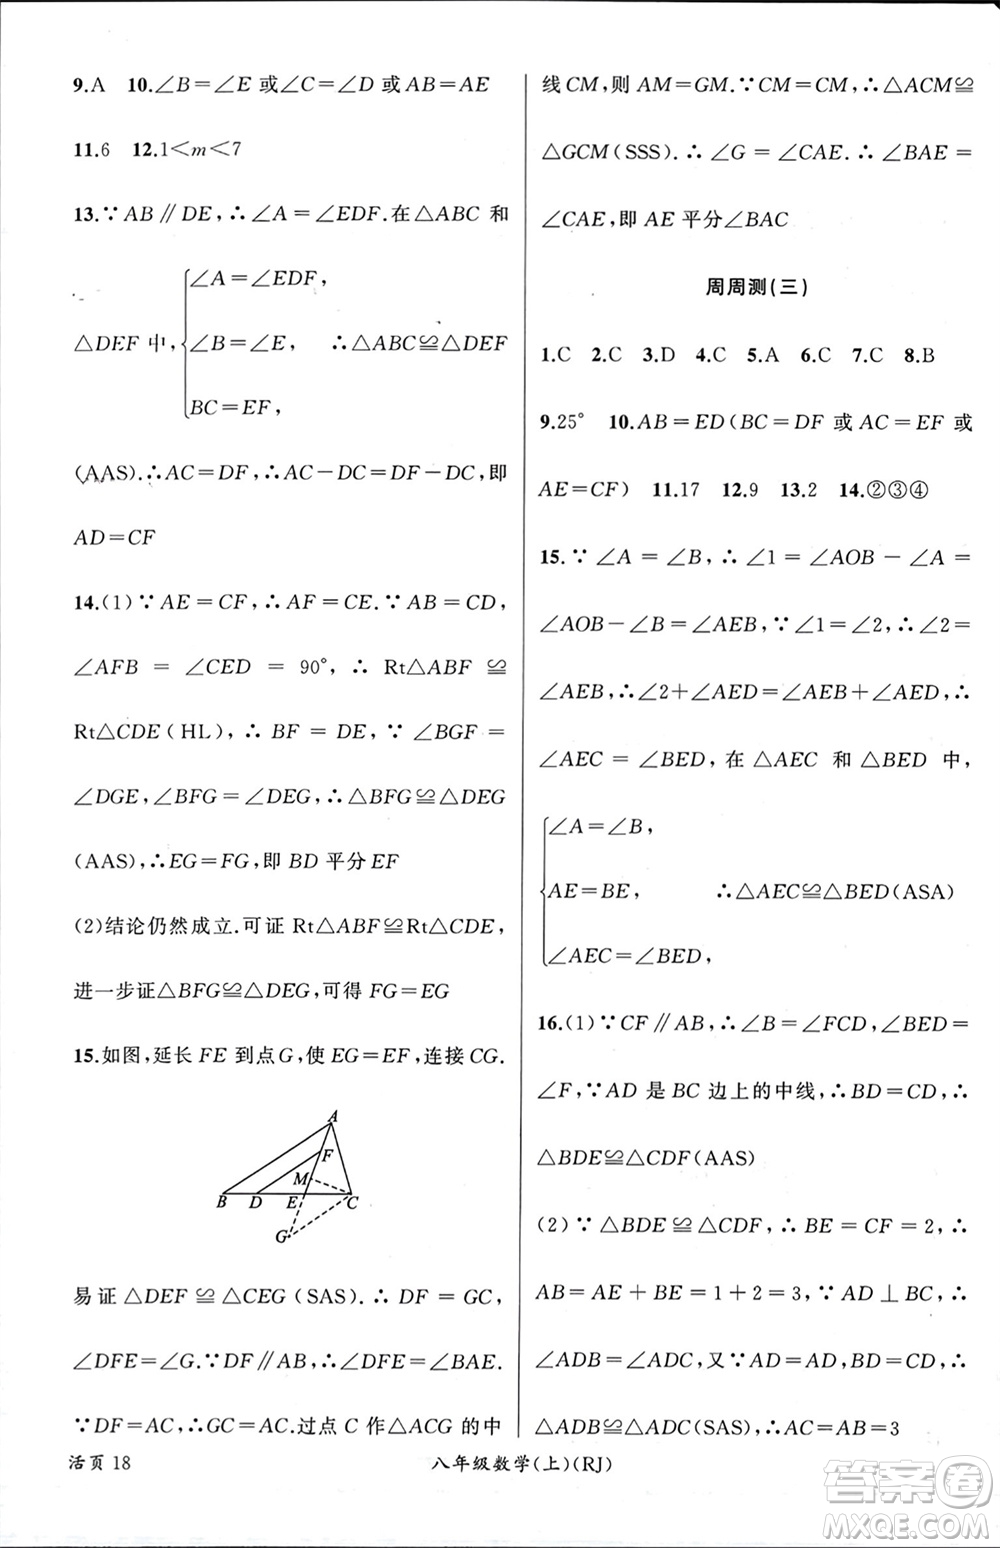 9.A　10.∠B＝∠E 或∠C＝∠D 或 AB＝AE
11.6　12.1＜m＜7
13.∵AB∥DE,∴∠A＝∠EDF.在△ABC 和
∠A＝∠EDF,
△DEF 中, ∠B＝∠E,　∴△ABC≌△DEF
BC＝EF,
(AAS).∴AC＝DF,∴AC－DC＝DF－DC,即
AD＝CF
14.(1)∵AE＝CF,∴AF＝CE.∵AB＝CD,
∠AFB ＝ ∠CED ＝ 90°,∴ Rt△ABF ≌
Rt△CDE(HL),∴BF＝DE,∵∠BGF＝
∠DGE,∠BFG＝∠DEG,∴△BFG≌△DEG
(AAS),∴EG＝FG,即 BD 平分 EF
(2)结论仍然成立.可证 Rt△ABF≌Rt△CDE,
进一步证△BFG≌△DEG,可得 FG＝EG
15.如图,延长 FE 到点G,使 EG＝EF,连接 CG.
A
F
M
B D E C
G
易证△DEF≌△CEG(SAS).∴DF＝GC,
∠DFE＝∠G.∵DF∥AB,∴∠DFE＝∠BAE.
∵DF＝AC,∴GC＝AC.过点 C 作△ACG 的中
线 CM,则 AM＝GM.∵CM＝CM,∴△ACM≌
△GCM(SSS).∴∠G＝∠CAE.∴∠BAE＝
∠CAE,即 AE 平分∠BAC
周周测(三)
1.C　2.C　3.D　4.C　5.A　6.C　7.C　8.B
9.25°　10.AB＝ED(BC＝DF 或 AC＝EF 或
AE＝CF)　11.17　12.9　13.2　14.②③④
15.∵∠A＝∠B,∴∠1＝∠AOB－∠A＝
∠AOB－∠B＝∠AEB,∵∠1＝∠2,∴∠2＝
∠AEB,∴∠2＋∠AED＝∠AEB＋∠AED,∴
∠AEC＝∠BED,在△AEC 和△BED 中,
∠A＝∠B,
AE＝BE,　∴△AEC≌△BED(ASA)
∠AEC＝∠BED,
16.(1)∵CF∥AB,∴∠B＝∠FCD,∠BED＝
∠F,∵AD 是 BC 边上的中线,∴BD＝CD,∴
△BDE≌△CDF(AAS)
(2)∵△BDE≌△CDF,∴BE＝CF＝2,∴
AB＝AE＋BE＝1＋2＝3,∵AD⊥BC,∴
∠ADB＝∠ADC,又∵AD＝AD,BD＝CD,∴
△ADB≌△ADC(SAS),∴AC＝AB＝3
活页 18
八年级数学(上)(RJ)
答案圈
MXQE.COM